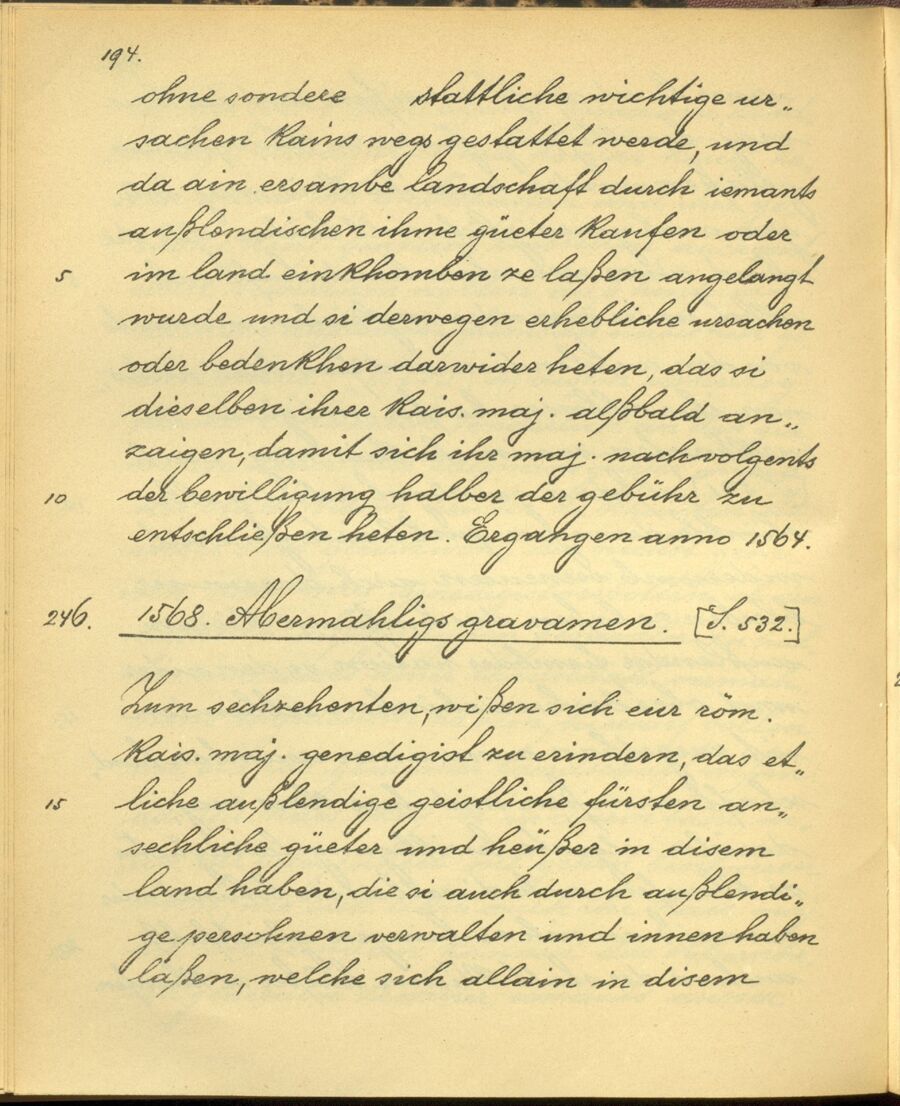 194.
ohne sondere stattliche wichtige ur„
sachen kains wegs gestattet werde, und
da ain ersambe landschaft durch iemants
außlendischen ihme güeter kaufen oder
5 im land einkhomben ze laßen angelangt
wurde und si derwegen erhebliche ursachen
oder bedenkhen darwider heten, das si
dieselben ihrer kais. maj. alßbald an„
zaigen, damit sich ihr maj. nachvolgents
10 der bewilligung halber der gebühr zu
entschließen heten. Ergangen anno 1564.
246. 1568. Abermahligs gravamen. [S. 532.]
Zum sechzehenten, wißen sich eur röm.
kais. maj. genedigist zu erindern, das et„
15 liche außlendige geistliche fürsten an„
sechliche güeter und heüßer in disem
land haben, die si auch durch außlendi„
ge persohnen verwalten und innen haben
laßen, welche sich allain in disem